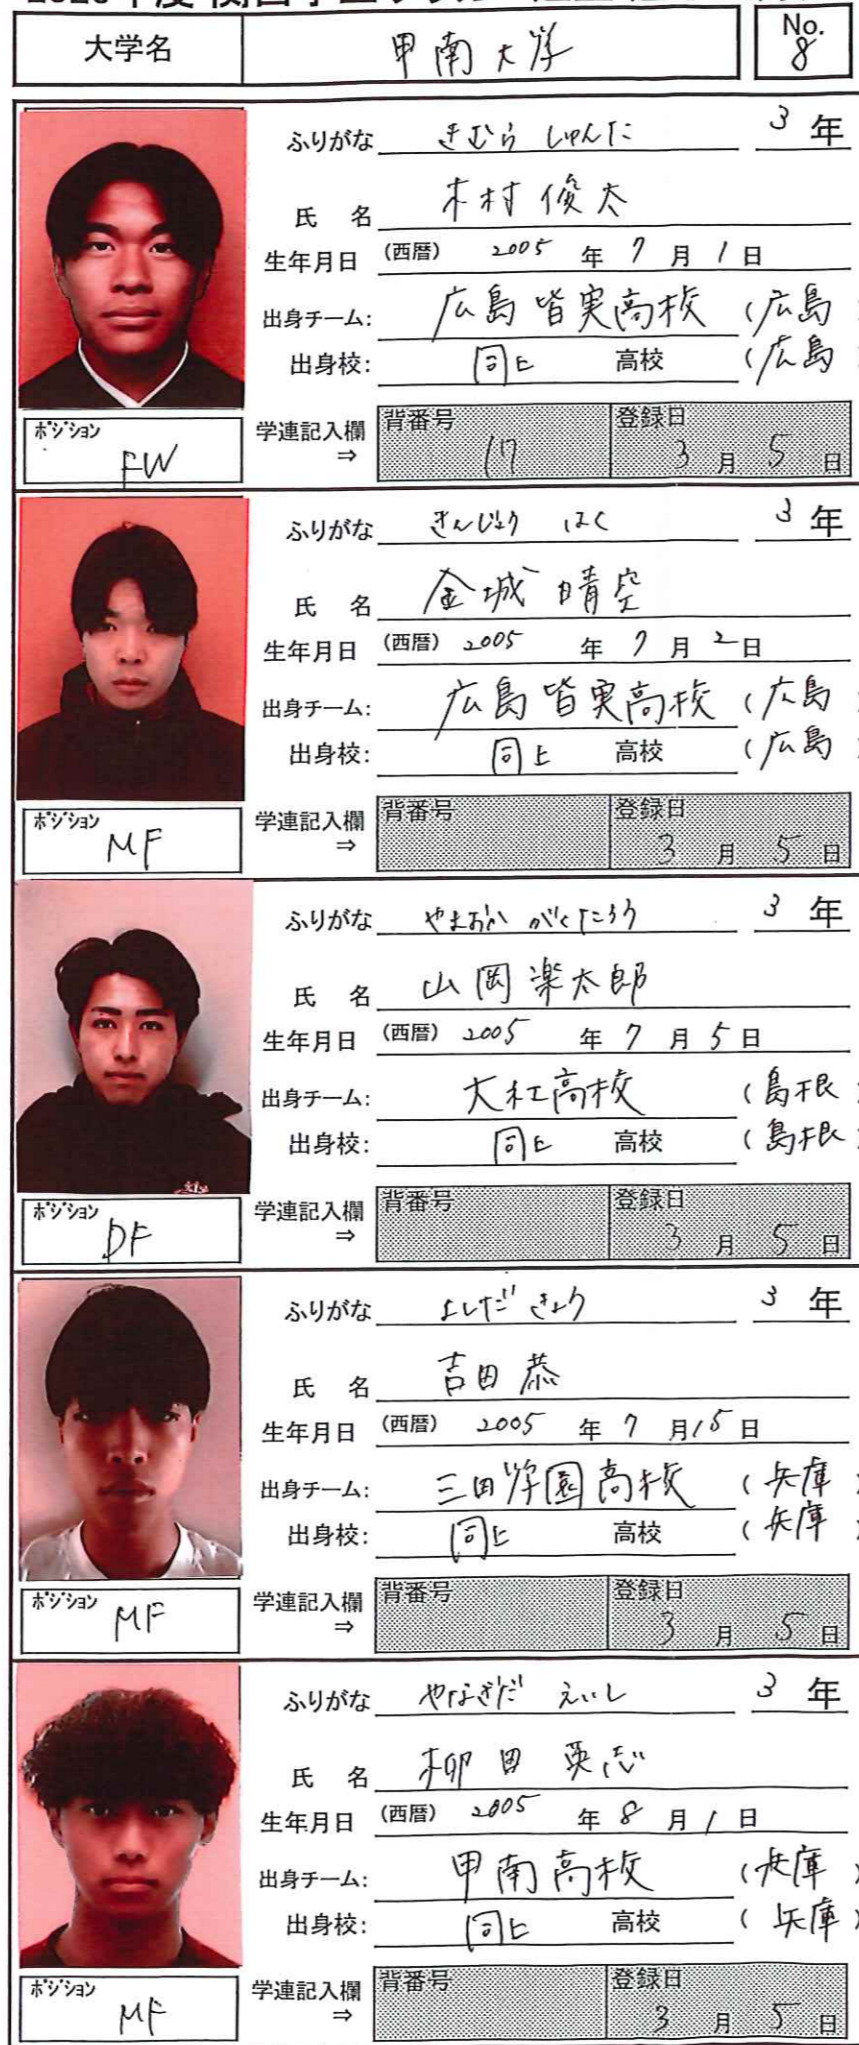 大学名 甲南大学 No. 8
ふりがな きむら しゅんた 3年
氏 名 木村俊太
生年月日 (西暦) 2005 年 7 月 1 日
出身チーム: 広島皆実高校 (広島
出身校: 同上 高校 (広島
ポジション FW 学連記入欄 ⇒ 背番号 17 登録日 3 月 5 日
ふりがな きんじょう はく 3年
氏 名 金城晴空
生年月日 (西暦) 2005 年 7 月 2 日
出身チーム: 広島皆実高校 (広島
出身校: 同上 高校 (広島
ポジション MF 学連記入欄 ⇒ 背番号 登録日 3 月 5 日
ふりがな やまおか がくたろう 3年
氏 名 山岡楽太郎
生年月日 (西暦) 2005 年 7 月 5 日
出身チーム: 大社高校 (島根
出身校: 同上 高校 (島根
ポジション DF 学連記入欄 ⇒ 背番号 登録日 3 月 5 日
ふりがな よしだ きょう 3年
氏 名 吉田恭
生年月日 (西暦) 2005 年 7 月 15 日
出身チーム: 三田学園高校 (兵庫
出身校: 同上 高校 (兵庫
ポジション MF 学連記入欄 ⇒ 背番号 登録日 3 月 5 日
ふりがな やなぎだ えいし 3年
氏 名 柳田英志
生年月日 (西暦) 2005 年 8 月 1 日
出身チーム: 甲南高校 (兵庫)
出身校: 同上 高校 (兵庫)
ポジション MF 学連記入欄 ⇒ 背番号 登録日 3 月 5 日